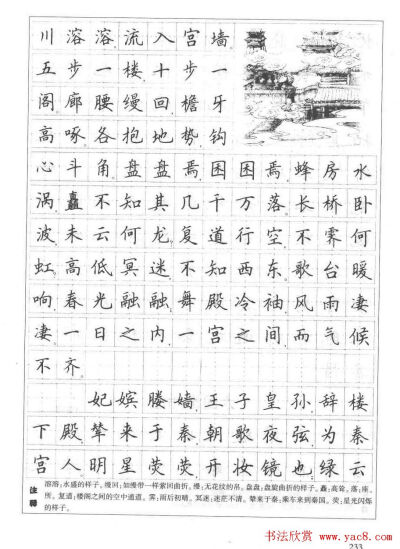 川溶溶流入宫墙
五步一楼十步一
阁廊腰缦回檐牙
高啄各抱地势钩
心斗角盘盘焉囷囷焉蜂房水
涡矗不知其几千万落长桥卧
波未云何龙复道行空不霁何
虹高低冥迷不知西东歌台暖
响春光融融舞殿冷袖风雨凄
凄一日之内一宫之间而气候
不齐
妃嫔媵嫱王子皇孙辞楼
下殿辇来于秦朝歌夜弦为秦
宫人明星荧荧开妆镜也绿云
注释
溶溶:水盛的样子。缦回:如缦带一样萦回曲折。缦:无花纹的帛。盘盘:盘旋曲折的样子。矗:高耸。落:座,
所。复道:楼阁之间的空中通道。霁:雨后初晴。冥迷:迷茫不清。辇来于秦:乘车来到秦国。荧:星光闪烁
的样子。
书法欣赏 www.yac8.com
233